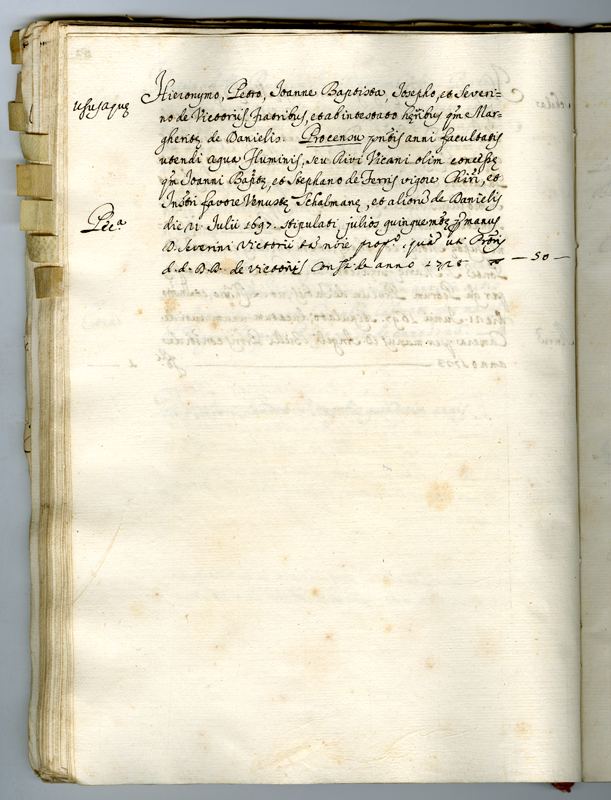 Usus aquæ
Hieronymo, Petro, Joanne Baptista, Josepho, et Severi-
no de Victoriis fratribus, et ab intestato hęribus qm Mar-
gheritę de Danielis. Pro censu pntis anni facultatis
utendi aqua fluminis, seu Rivi Vicani olim concessę
qm Joanni Bapttę et Stephano de Ferris vigore Chiri, et
Instri favore Venustę Schalmanę, et aliorũ de Danielis
Pec.a
die 21 Julii 1697. stipulati julios quinque
D. Severini Victorii
d. d. D. D. de Victoriis anno 1728 — 50 —